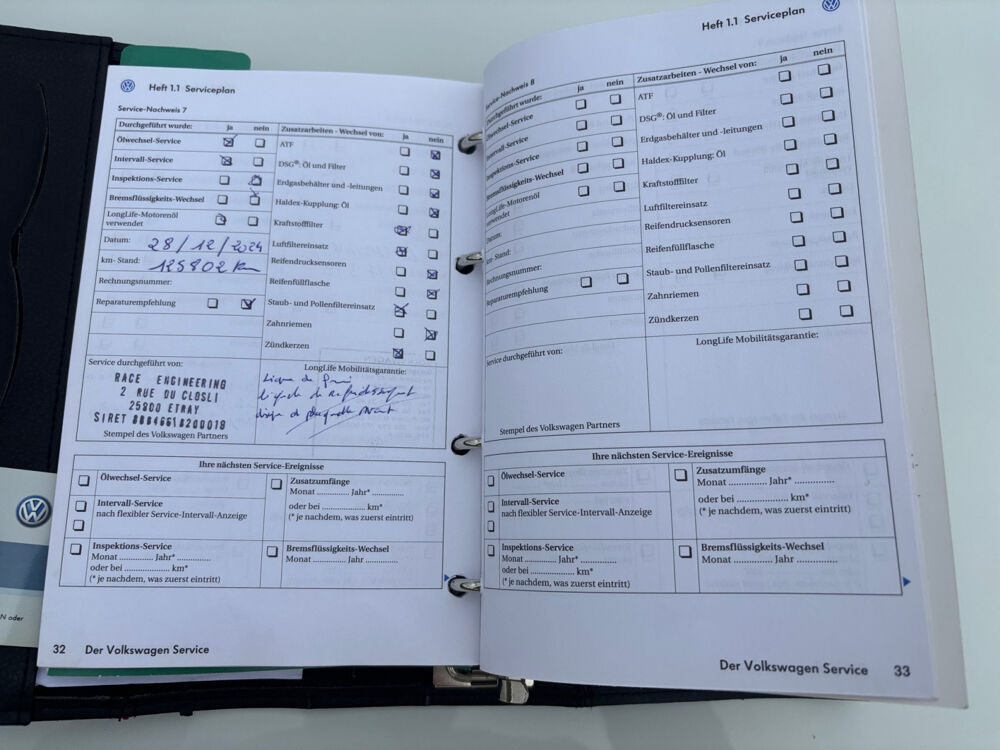 Heft 1.1 Serviceplan
Service-Nachweis 7
Durchgeführt wurde: ja nein
Ölwechsel-Service
Intervall-Service
Inspektions-Service
Bremsflüssigkeits-Wechsel
LongLife-Motorenöl
verwendet
Datum: 28/12/2024
km-Stand: 125802 km
Rechnungsnummer:
Reparaturempfehlung
Zusatzarbeiten - Wechsel von: ja nein
ATF
DSG®: Öl und Filter
Erdgasbehälter und -leitungen
Haldex-Kupplung: Öl
Kraftstofffilter
Luftfiltereinsatz
Reifendrucksensoren
Reifenfüllflasche
Staub- und Pollenfiltereinsatz
Zahnriemen
Zündkerzen
Service durchgeführt von:
RACE ENGINEERING
2 RUE DU CLOSLI
25800 ETRAY
SIRET
Stempel des Volkswagen Partners
LongLife Mobilitätsgarantie:
liquide de
Ihre nächsten Service-Ereignisse
Ölwechsel-Service
Intervall-Service
nach flexibler Service-Intervall-Anzeige
Inspektions-Service
Monat ............. Jahr* ...............
oder bei ................... km*
(* je nachdem, was zuerst eintritt)
Zusatzumfänge
Monat .............. Jahr* ..............
oder bei ................... km*
(* je nachdem, was zuerst eintritt)
Bremsflüssigkeits-Wechsel
Monat .............. Jahr ..............
32 Der Volkswagen Service
N oder
Heft 1.1 Serviceplan
Service-Nachweis 8
Durchgeführt wurde: ja nein
Ölwechsel-Service
Intervall-Service
Inspektions-Service
Bremsflüssigkeits-Wechsel
LongLife-Motorenöl
verwendet
Datum:
km-Stand:
Rechnungsnummer:
Reparaturempfehlung
Zusatzarbeiten - Wechsel von: ja nein
ATF
DSG®: Öl und Filter
Erdgasbehälter und -leitungen
Haldex-Kupplung: Öl
Kraftstofffilter
Luftfiltereinsatz
Reifendrucksensoren
Reifenfüllflasche
Staub- und Pollenfiltereinsatz
Zahnriemen
Zündkerzen
Service durchgeführt von:
Stempel des Volkswagen Partners
LongLife Mobilitätsgarantie:
Ihre nächsten Service-Ereignisse
Ölwechsel-Service
Intervall-Service
nach flexibler Service-Intervall-Anzeige
Inspektions-Service
Monat ............. Jahr* ...............
oder bei ................... km*
(* je nachdem, was zuerst eintritt)
Zusatzumfänge
Monat .............. Jahr* ..............
oder bei ................... km*
(* je nachdem, was zuerst eintritt)
Bremsflüssigkeits-Wechsel
Monat .............. Jahr ..............
Der Volkswagen Service 33